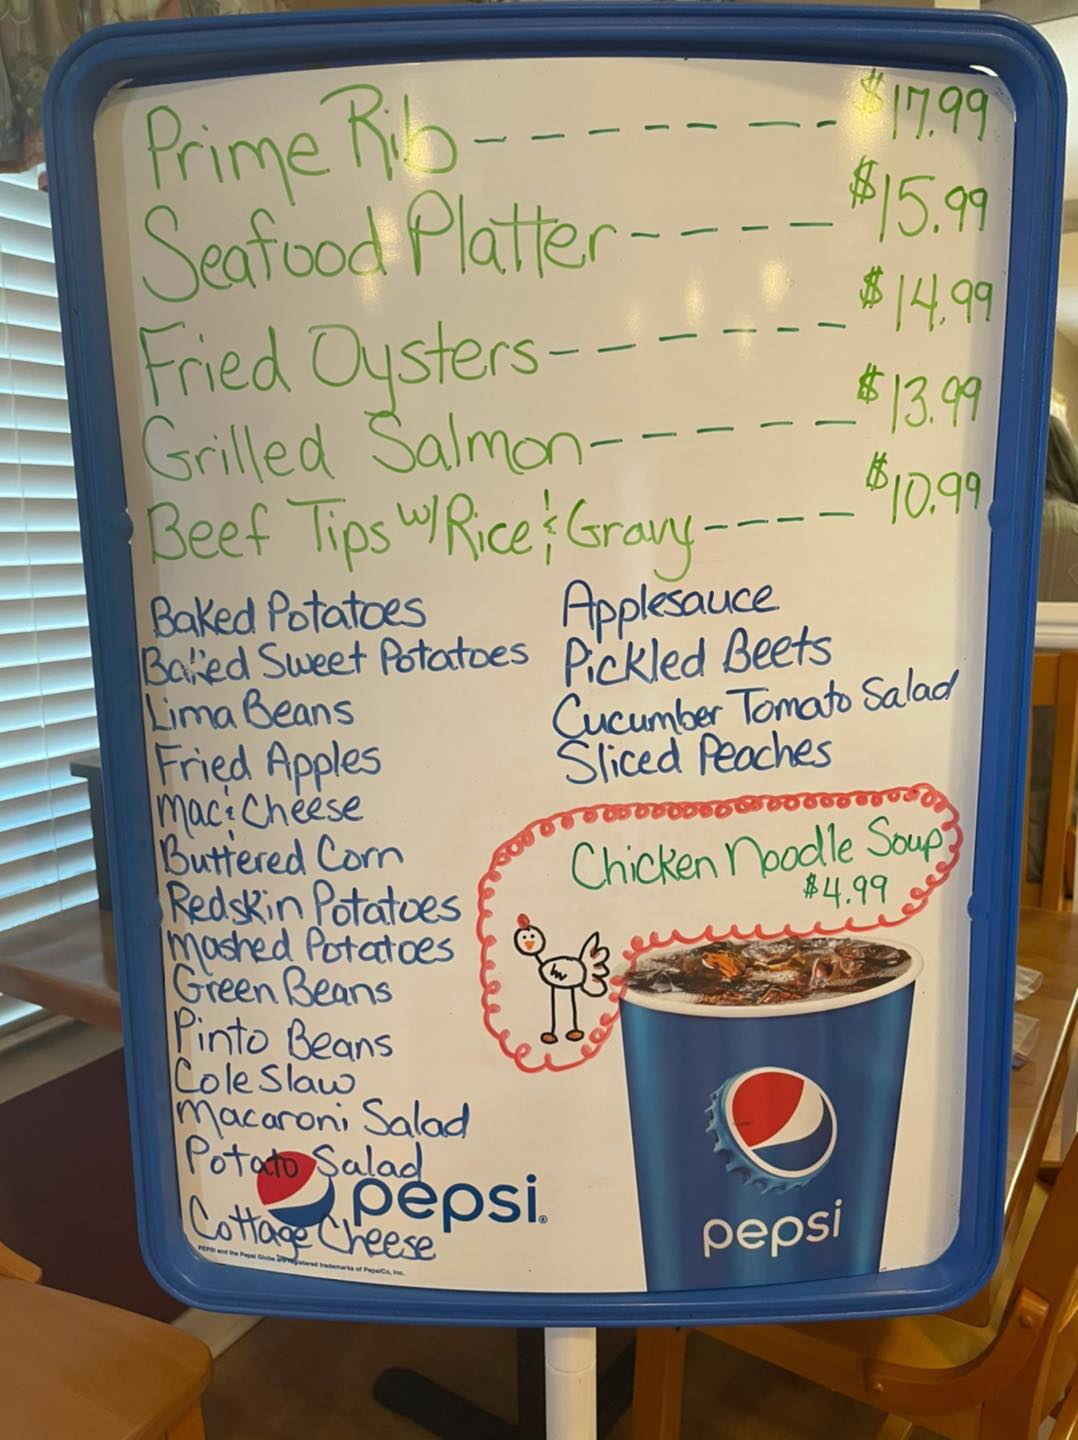 Prime Rib-------- $17.99
Seafood Platter----- $15.99
Fried Oysters------ $14.99
Grilled Salmon------ $13.99
Beef Tips w/ Rice & Gravy---- $10.99
Baked Potatoes
Baked Sweet Potatoes
Lima Beans
Fried Apples
Mac & Cheese
Buttered Corn
Redskin Potatoes
Mashed Potatoes
Green Beans
Pinto Beans
Cole Slaw
Macaroni Salad
Potato Salad
Cottage Cheese
Applesauce
Pickled Beets
Cucumber Tomato Salad
Sliced Peaches
Chicken Noodle Soup
$4.99
pepsi®
pepsi
PEPSI and the Pepsi Globe are registered trademarks of PepsiCo, Inc.